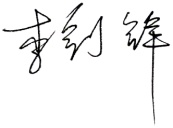 李剑锋